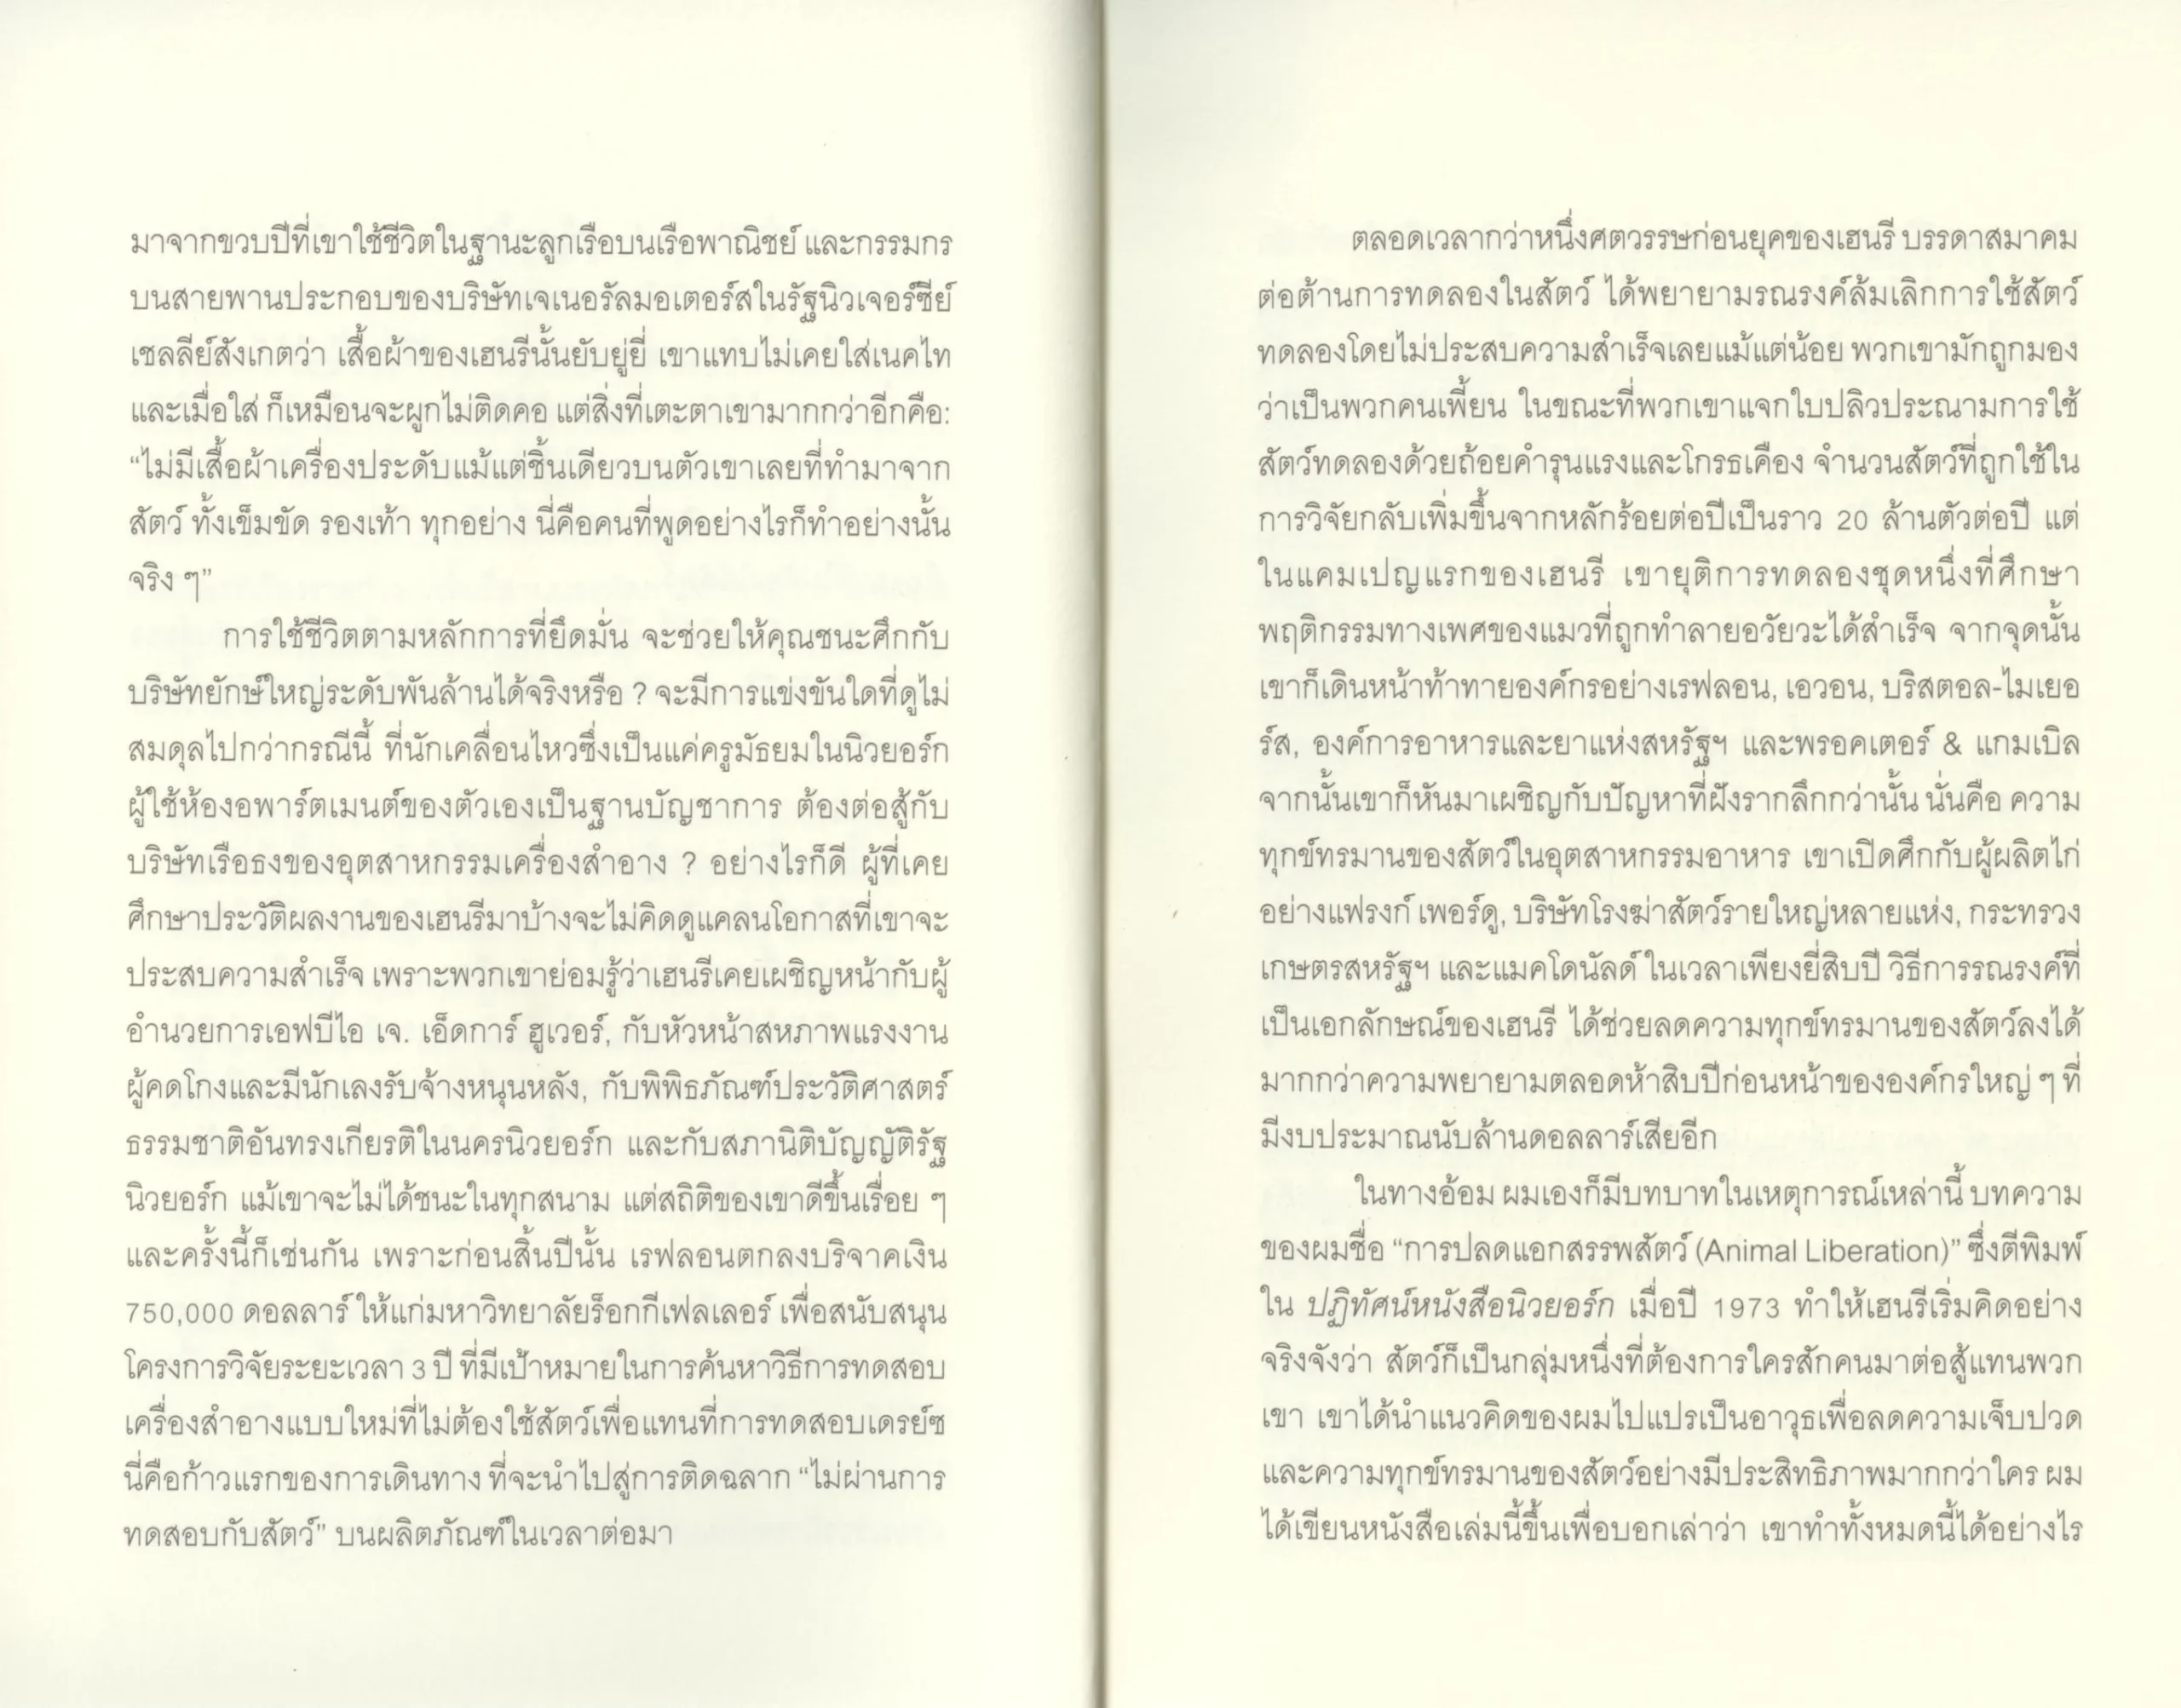 มาจากขวบปีที่เขาใช้ชีวิตในฐานะลูกเรือบนเรือพาณิชย์ และกรรมกร
บนสายพานประกอบของบริษัทเจเนอรัลมอเตอร์สในรัฐนิวเจอร์ซีย์
เชลลีย์สังเกตว่า เสื้อผ้าของเฮนรีนั้นยับยู่ยี่ เขาแทบไม่เคยใส่เนคไท
และเมื่อใส่ ก็เหมือนจะผูกไม่ติดคอ แต่สิ่งที่เตะตาเขามากกว่าอีกคือ:
“ไม่มีเสื้อผ้าเครื่องประดับแม้แต่ชิ้นเดียวบนตัวเขาเลยที่ทำมาจาก
สัตว์ ทั้งเข็มขัด รองเท้า ทุกอย่าง นี่คือคนที่พูดอย่างไรก็ทำอย่างนั้น
จริง ๆ”
การใช้ชีวิตตามหลักการที่ยึดมั่น จะช่วยให้คุณชนะศึกกับ
บริษัทยักษ์ใหญ่ระดับพันล้านได้จริงหรือ ? จะมีการแข่งขันใดที่ดูไม่
สมดุลไปกว่ากรณีนี้ ที่นักเคลื่อนไหวซึ่งเป็นแค่ครูมัธยมในนิวยอร์ก
ผู้ใช้ห้องอพาร์ตเมนต์ของตัวเองเป็นฐานบัญชาการ ต้องต่อสู้กับ
บริษัทเรือธงของอุตสาหกรรมเครื่องสำอาง ? อย่างไรก็ดี ผู้ที่เคย
ศึกษาประวัติผลงานของเฮนรีมาบ้างจะไม่คิดดูแคลนโอกาสที่เขาจะ
ประสบความสำเร็จ เพราะพวกเขาย่อมรู้ว่าเฮนรีเคยเผชิญหน้ากับผู้
อำนวยการเอฟบีไอ เจ. เอ็ดการ์ ฮูเวอร์, กับหัวหน้าสหภาพแรงงาน
ผู้คดโกงและมีนักเลงรับจ้างหนุนหลัง, กับพิพิธภัณฑ์ประวัติศาสตร์
ธรรมชาติอันทรงเกียรติในนครนิวยอร์ก และกับสภานิติบัญญัติรัฐ
นิวยอร์ก แม้เขาจะไม่ได้ชนะในทุกสนาม แต่สถิติของเขาดีขึ้นเรื่อย ๆ
และครั้งนี้ก็เช่นกัน เพราะก่อนสิ้นปีนั้น เรฟลอนตกลงบริจาคเงิน
750,000 ดอลลาร์ ให้แก่มหาวิทยาลัยร็อกกีเฟลเลอร์ เพื่อสนับสนุน
โครงการวิจัยระยะเวลา 3 ปี ที่มีเป้าหมายในการค้นหาวิธีการทดสอบ
เครื่องสำอางแบบใหม่ที่ไม่ต้องใช้สัตว์เพื่อแทนที่การทดสอบเดรย์ซ
นี่คือก้าวแรกของการเดินทาง ที่จะนำไปสู่การติดฉลาก “ไม่ผ่านการ
ทดสอบกับสัตว์” บนผลิตภัณฑ์ในเวลาต่อมา
ตลอดเวลากว่าหนึ่งศตวรรษก่อนยุคของเฮนรี บรรดาสมาคม
ต่อต้านการทดลองในสัตว์ ได้พยายามรณรงค์ล้มเลิกการใช้สัตว์
ทดลองโดยไม่ประสบความสำเร็จเลยแม้แต่น้อย พวกเขามักถูกมอง
ว่าเป็นพวกคนเพี้ยน ในขณะที่พวกเขาแจกใบปลิวประณามการใช้
สัตว์ทดลองด้วยถ้อยคำรุนแรงและโกรธเคือง จำนวนสัตว์ที่ถูกใช้ใน
การวิจัยกลับเพิ่มขึ้นจากหลักร้อยต่อปีเป็นราว 20 ล้านตัวต่อปี แต่
ในแคมเปญแรกของเฮนรี เขายุติการทดลองชุดหนึ่งที่ศึกษา
พฤติกรรมทางเพศของแมวที่ถูกทำลายอวัยวะได้สำเร็จ จากจุดนั้น
เขาก็เดินหน้าท้าทายองค์กรอย่างเรฟลอน, เอวอน, บริสตอล-ไมเยอ
ร์ส, องค์การอาหารและยาแห่งสหรัฐฯ และพรอคเตอร์ & แกมเบิล
จากนั้นเขาก็หันมาเผชิญกับปัญหาที่ฝังรากลึกกว่านั้น นั่นคือ ความ
ทุกข์ทรมานของสัตว์ในอุตสาหกรรมอาหาร เขาเปิดศึกกับผู้ผลิตไก่
อย่างแฟรงก์ เพอร์ดู, บริษัทโรงฆ่าสัตว์รายใหญ่หลายแห่ง, กระทรวง
เกษตรสหรัฐฯ และแมคโดนัลด์ ในเวลาเพียงยี่สิบปี วิธีการรณรงค์ที่
เป็นเอกลักษณ์ของเฮนรี ได้ช่วยลดความทุกข์ทรมานของสัตว์ลงได้
มากกว่าความพยายามตลอดห้าสิบปีก่อนหน้าขององค์กรใหญ่ ๆ ที่
มีงบประมาณนับล้านดอลลาร์เสียอีก
ในทางอ้อม ผมเองก็มีบทบาทในเหตุการณ์เหล่านี้ บทความ
ของผมชื่อ “การปลดแอกสรรพสัตว์ (Animal Liberation)” ซึ่งตีพิมพ์
ใน ปฏิทัศน์หนังสือนิวยอร์ก เมื่อปี 1973 ทำให้เฮนรีเริ่มคิดอย่าง
จริงจังว่า สัตว์ก็เป็นกลุ่มหนึ่งที่ต้องการใครสักคนมาต่อสู้แทนพวก
เขา เขาได้นำแนวคิดของผมไปแปรเป็นอาวุธเพื่อลดความเจ็บปวด
และความทุกข์ทรมานของสัตว์อย่างมีประสิทธิภาพมากกว่าใคร ผม
ได้เขียนหนังสือเล่มนี้ขึ้นเพื่อบอกเล่าว่า เขาทำทั้งหมดนี้ได้อย่างไร